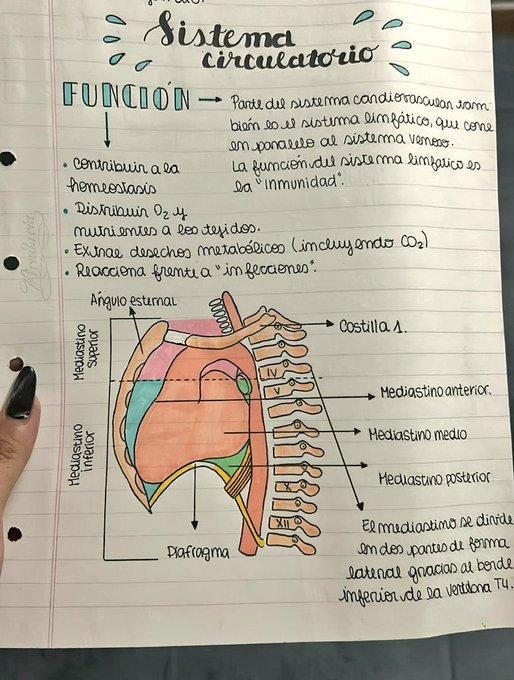 Sistema
circulatorio
FUNCIÓN
Parte del sistema cardiovascular tam-
bién es el sistema linfático, que corre
en paralelo al sistema venoso.
La función del sistema linfático es
la "inmunidad".
• Contribuir a la
homeostasis
• Distribuir O₂ y
nutrientes a los tejidos.
• Extrae desechos metabólicos (incluyendo CO₂)
• Reacciona frente a "infecciones".
Ángulo esternal
Costilla 1.
Mediastino
superior
IV
V
Mediastino anterior.
Mediastino medio
Mediastino
inferior
Mediastino posterior
X
XII
Diafragma
El mediastino se divide
en dos partes de forma
lateral gracias al borde
inferior de la vertebra T4.